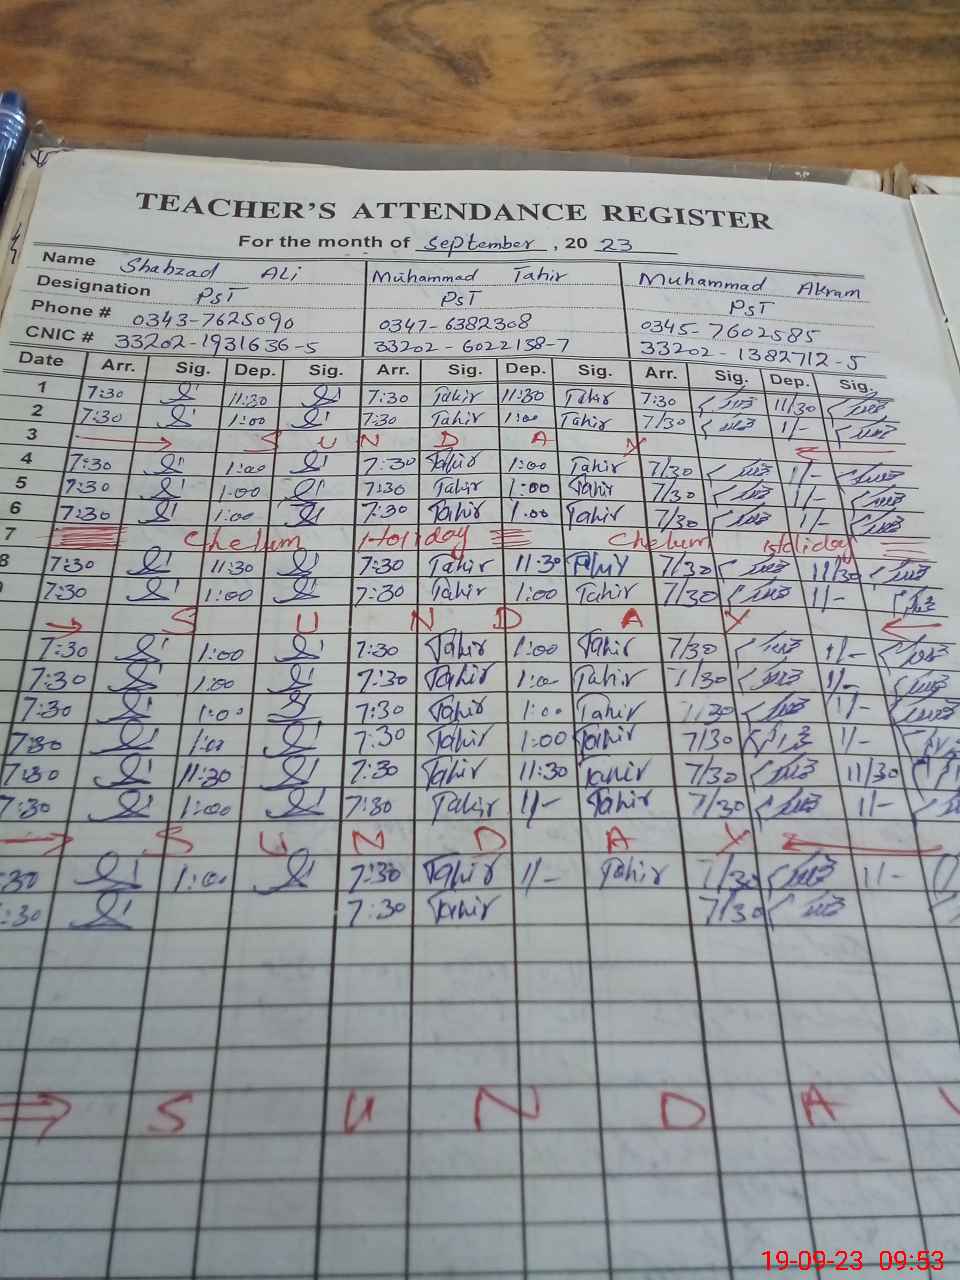 TEACHER'S ATTENDANCE REGISTER
For the month of September, 20 23
Name Shahzad Ali Muhammad Tahir Muhammad Akram
Designation PST PST PST
Phone # 0343-7625090 0347-6382308 0345-7602585
CNIC # 33202-1931636-5 33202-6022158-7 33202-1382712-5
Date Arr. Sig. Dep. Sig. Arr. Sig. Dep. Sig. Arr. Sig. Dep. Sig.
1 7:30 11:30 7:30 Tahir 11:30 Tahir 7:30 11/30
2 7:30 1:00 7:30 Tahir 1:00 Tahir 7/30 1/-
3 S U N D A Y
4 7:30 1:00 7:30 Tahir 1:00 Tahir 7/30 1/-
5 7:30 1:00 7:30 Tahir 1:00 Tahir 7/30 1/-
6 7:30 1:00 7:30 Tahir 1:00 Tahir 7/30 1/-
7 Chelum Holiday Chelum Holiday
8 7:30 11:30 7:30 Tahir 11:30 7/30 11/30
7:30 1:00 7:30 Tahir 1:00 Tahir 7/30 1/-
S U N D A Y
7:30 1:00 7:30 Tahir 1:00 Tahir 7/30 1/-
7:30 1:00 7:30 Tahir 1:00 Tahir 7/30 1/-
7:30 1:00 7:30 Tahir 1:00 Tahir 7/30 1/-
7:30 1:00 7:30 Tahir 1:00 Tahir 7/30 1/-
7:30 11:30 7:30 Tahir 11:30 Tahir 7/30 11/30
7:30 1:00 7:30 Tahir 1/- Tahir 7/30 1/-
S U N D A Y
:30 1:00 7:30 Tahir 1/- Tahir 7/30 1/-
:30 7:30 Tahir 7/30
S U N D A Y
19-09-23 09:53